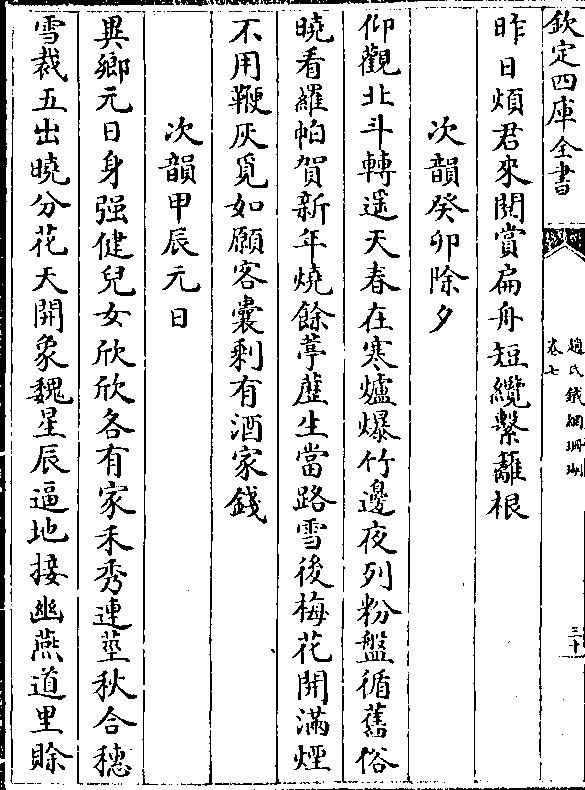 欽定四庫全書
趙氏鐵網珊瑚
卷七
三十
昨日煩君來閱賞扁舟短纜繫籬根
次韻癸卯除夕
仰觀北斗轉遥天春在寒爐爆竹邊夜列粉盤循舊俗
曉看羅帕賀新年燒餘葶藶生當路雪後梅花開滿煙
不用鞭灰覓如願客囊剩有酒家錢
次韻甲辰元日
異鄉元日身强健兒女欣欣各有家禾秀連莖秋合穗
雪裁五出曉分花天開象魏星辰逼地接幽燕道里賖